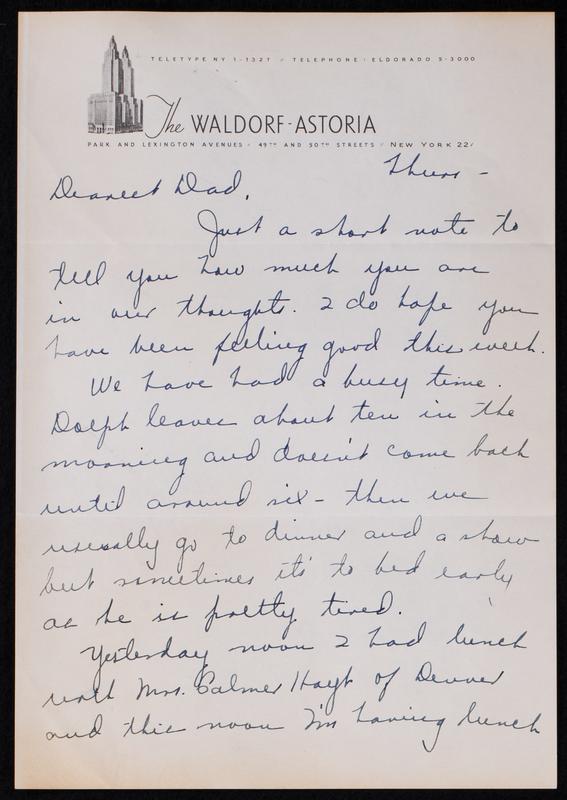 TELETYPE NY 1-1327 / TELEPHONE · ELDORADO 5-3000
The WALDORF-ASTORIA
PARK AND LEXINGTON AVENUES / 49TH AND 50TH STREETS / NEW YORK 22/
Thurs -
Dearest Dad,
Just a short note to
tell you how much you are
in our thoughts. I do hope you
have been feeling good this week.
We have had a busy time.
Dolph leaves about ten in the
morning and doesn't come back
until around six - then we
usually go to dinner and a show
but sometimes its to bed early
as he is pretty tired.
Yesterday noon I had lunch
with Mrs. Palmer Hoyt of Denver
and this noon I'm having lunch